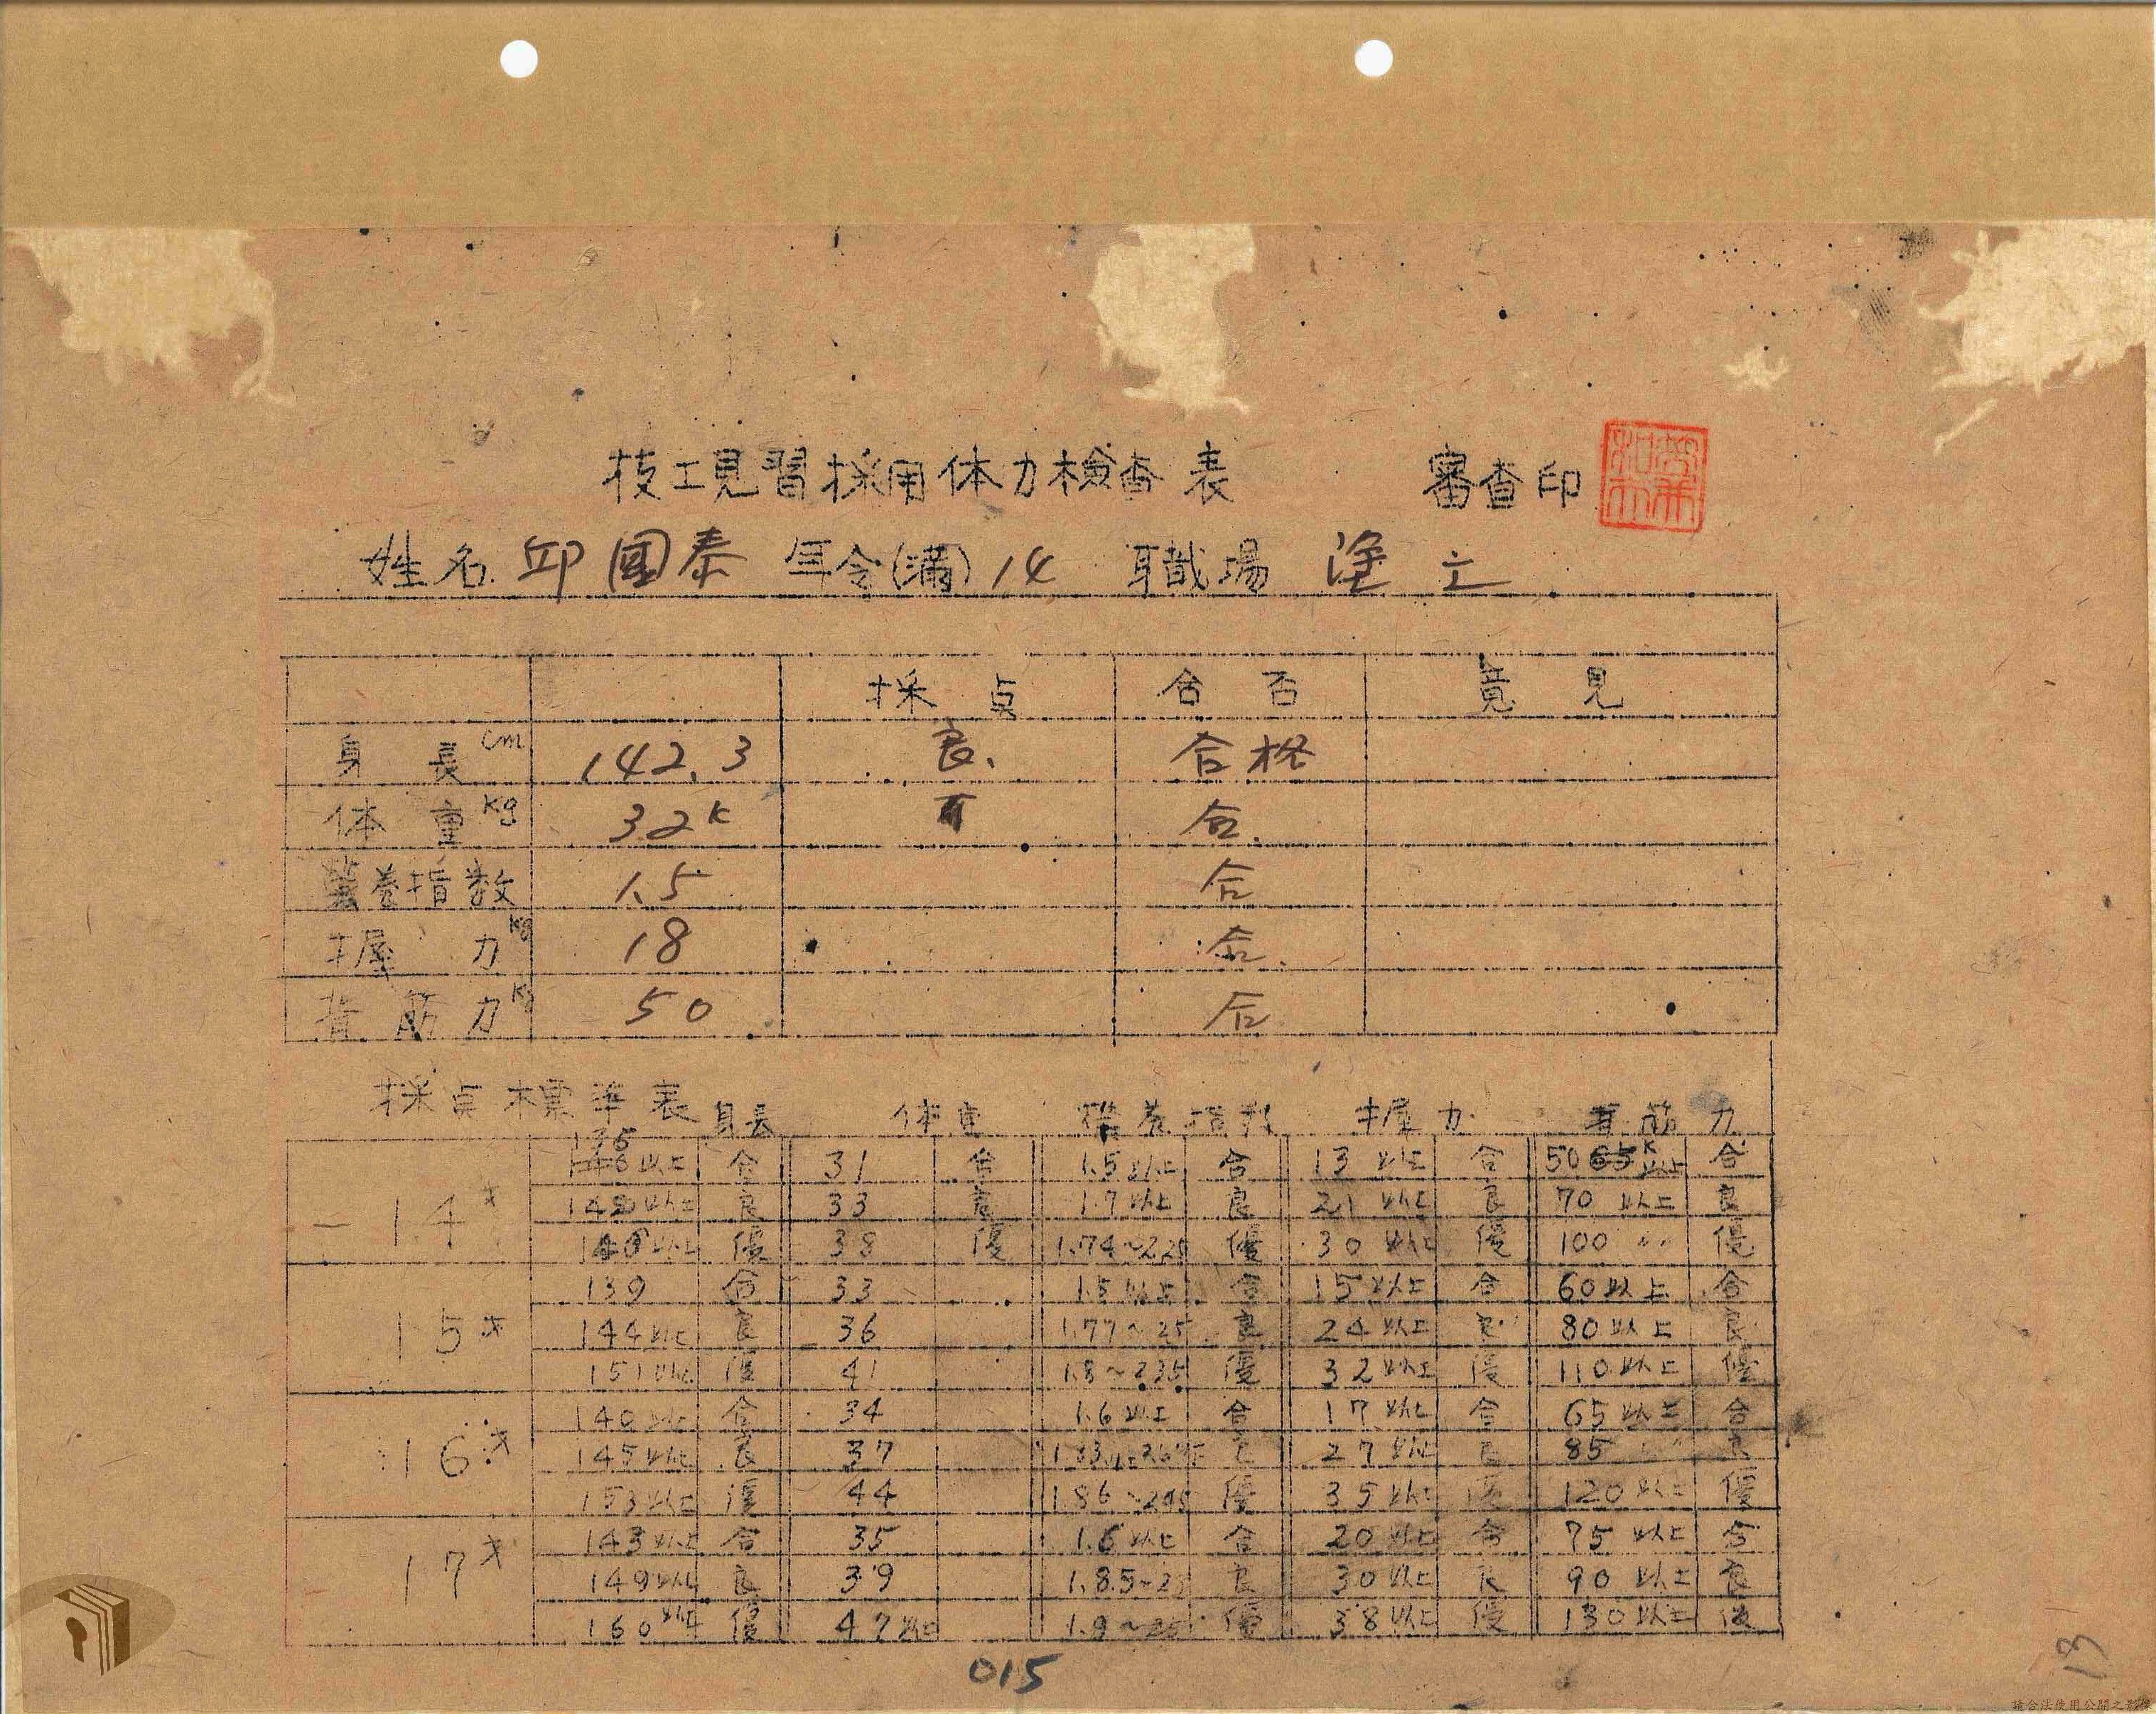 技工見習採用体力検査表 審査印
姓名 邱國泰 年令(満) 14 職場 塗工
採点 合否 意見
身長 cm 142.3 良. 合格
体重 kg 32k 可 合.
栄養指数 1.5 合
握力 kg 18 合.
背筋力 kg 50 合
採点標準表 身長 体重 栄養指数 握力 背筋力
合 31 合 1.5以上 合 13以上 合 50 以上 合
14才 以上 良 33 良 1.7以上 良 21以上 良 70以上 良
以上 優 38 優 優 30以上 優 100〃 優
139 合 33 1.5以上 合 15以上 合 60以上 合
15才 144以上 良 36 1.77~25 良 24以上 良 80以上 良
151以上 優 41 1.8~2.35 優 32以上 優 110以上 優
140以上 合 34 1.6以上 合 17以上 合 65以上 合
16才 145以上 良 37 27以上 良 85 良
153以上 優 44 優 35以上 優 120以上 優
143以上 合 35 1.6以上 合 20以上 合 75以上 合
17才 149以上 良 39 良 30以上 良 90以上 良
160以上 優 47以上 優 38以上 優 130以上 優
015
13